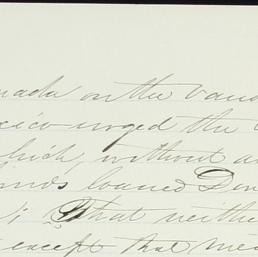 made on the
xico urged the
which, without a
inds loaned Den
; That neithe
except that me